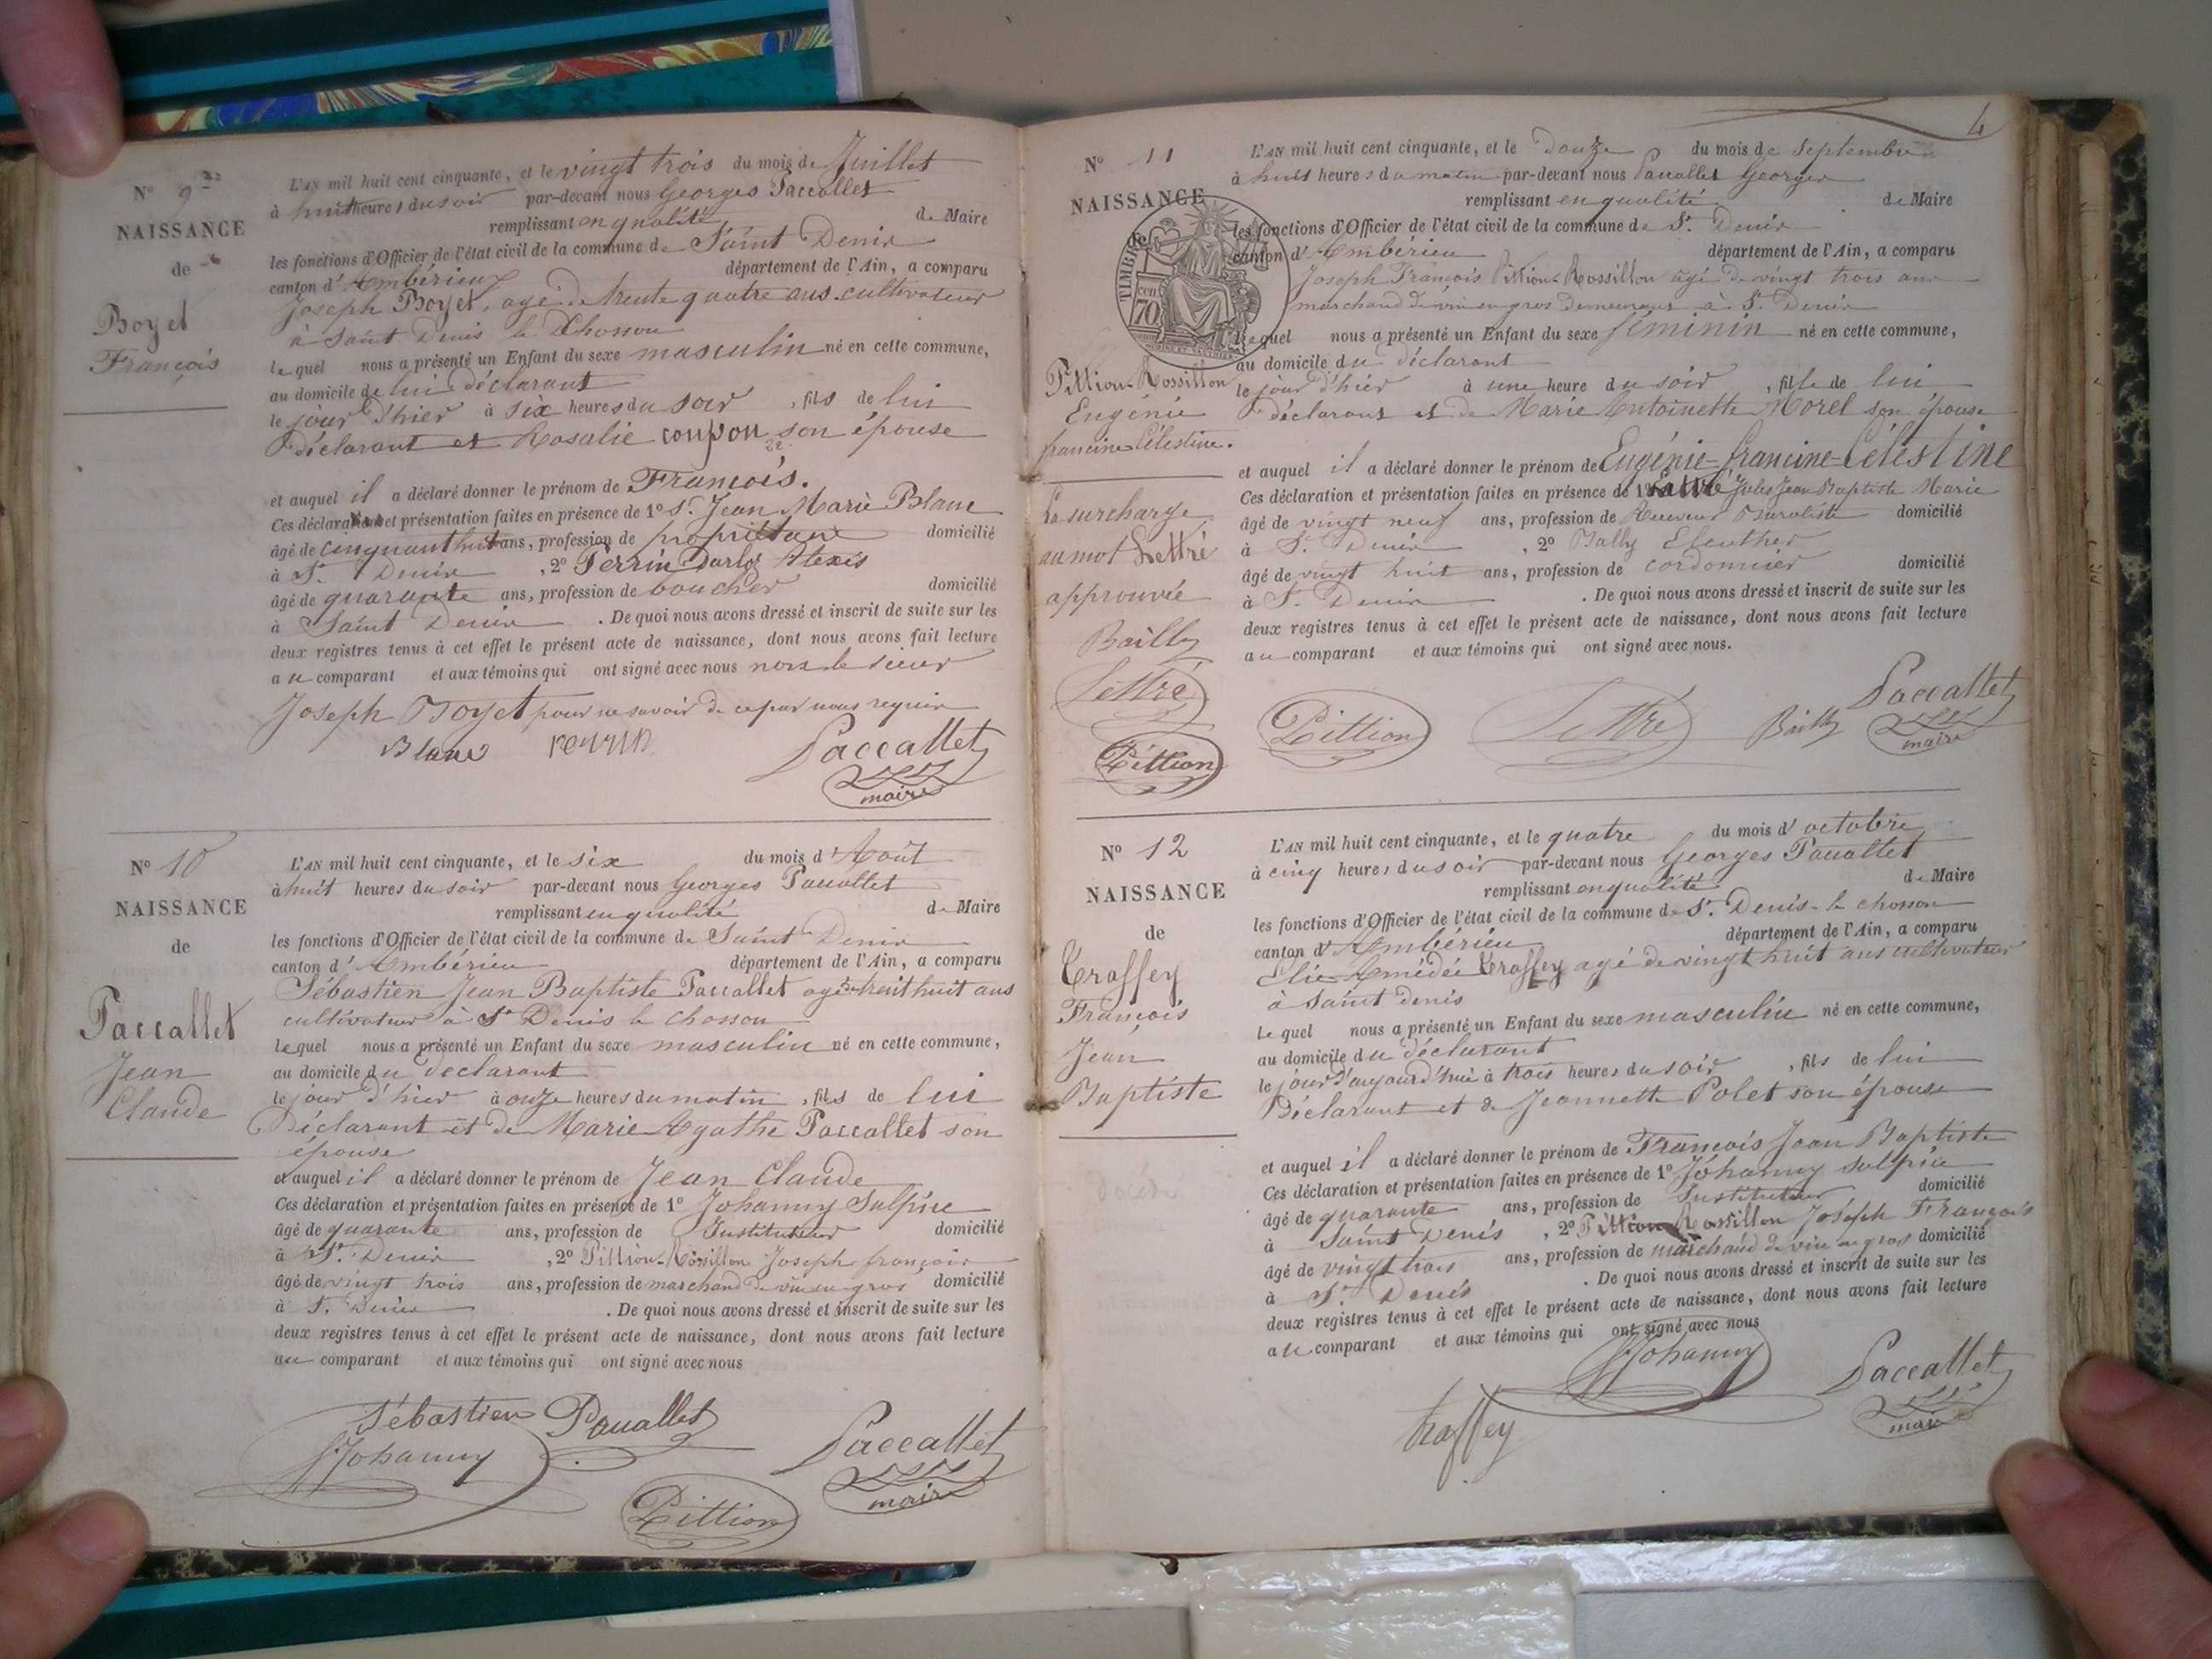 N° 9
NAISSANCE
de
Boyet
François
L'AN mil huit cent cinquante, et le vingt trois du mois de Juillet
à huit heures du soir par-devant nous Georges Paccallet
remplissant en qualité de Maire
les fonctions d'Officier de l'état civil de la commune de Saint Denis
canton d'Ambérieux département de l'Ain, a comparu
Joseph Boyet, agé de trente quatre ans cultivateur
à Saint Denis le Chosson
lequel nous a présenté un Enfant du sexe masculin né en cette commune,
au domicile de lui déclarant
le jour d'hier à six heures du soir, fils de lui
Déclarant et Rosalie coupon son épouse
et auquel il a déclaré donner le prénom de François.
Ces déclaration et présentation faites en présence de 1° Sr. Jean Marie Blanc
âgé de cinquant huit ans, profession de propriétaire domicilié
à St. Denis, 2° Perrin Alexis
âgé de quarante ans, profession de boucher domicilié
à Saint Denis. De quoi nous avons dressé et inscrit de suite sur les
deux registres tenus à cet effet le présent acte de naissance, dont nous avons fait lecture
au comparant et aux témoins qui ont signé avec nous non le sieur
Joseph Boyet pour ne savoir de ce par nous requis
Blanc Perrin Paccallet
maire
N° 10
NAISSANCE
de
Paccallet
Jean
Claude
L'AN mil huit cent cinquante, et le six du mois d'Août
à huit heures du soir par-devant nous Georges Paccallet
remplissant en qualité de Maire
les fonctions d'Officier de l'état civil de la commune de Saint Denis
canton d'Ambérieu département de l'Ain, a comparu
Sébastien Jean Baptiste Paccallet agé de trent huit ans
cultivateur à St Denis le Chosson
lequel nous a présenté un Enfant du sexe masculin né en cette commune,
au domicile du declarant
le jour d'hier à onze heures du matin, fils de lui
Déclarant et de Marie Agathe Paccallet son
épouse
et auquel il a déclaré donner le prénom de Jean Claude
Ces déclaration et présentation faites en présence de 1° Johanny Sulpice
âgé de quarante ans, profession de Instituteur domicilié
à St. Denis, 2° Pittion-Rossillon Joseph françois
âgé de vingt trois ans, profession de marchand de vin en gros domicilié
à St. Denis. De quoi nous avons dressé et inscrit de suite sur les
deux registres tenus à cet effet le présent acte de naissance, dont nous avons fait lecture
au comparant et aux témoins qui ont signé avec nous
Sébastien Paccallet
Johanny Paccallet
Pittion maire
4
N° 11
NAISSANCE
de
TIMBRE
70 cen
Pittion-Rossillon
Eugénie
francine Célestine.
La surcharge
au mot Lettré
approuvée
Bailly
Lettré
Pittion
L'AN mil huit cent cinquante, et le douze du mois de Septembre
à huit heures du matin par-devant nous Paccallet Georges
remplissant en qualité de Maire
les fonctions d'Officier de l'état civil de la commune de St. Denis
canton d'Ambérieu département de l'Ain, a comparu
Joseph François Pittion-Rossillon agé de vingt trois ans
marchand de vin en gros demeurant à St. Denis
lequel nous a présenté un Enfant du sexe féminin né en cette commune,
au domicile du déclarant
le jour d'hier à une heure du soir, fille de lui
déclarant et de Marie Antoinette Morel son épouse
et auquel il a déclaré donner le prénom de Eugénie-francine-Célestine
Ces déclaration et présentation faites en présence de 1° Lettré Jules Jean Baptiste Marie
âgé de vingt neuf ans, profession de Receveur domicilié
à St. Denis, 2° Bailly Eleuther
âgé de vingt huit ans, profession de cordonnier domicilié
à St. Denis. De quoi nous avons dressé et inscrit de suite sur les
deux registres tenus à cet effet le présent acte de naissance, dont nous avons fait lecture
au comparant et aux témoins qui ont signé avec nous.
Pittion Lettré Bailly Paccallet
maire
N° 12
NAISSANCE
de
Traffey
François
Jean
Baptiste
L'AN mil huit cent cinquante, et le quatre du mois d'octobre
à cinq heures du soir par-devant nous Georges Paccallet
remplissant en qualité de Maire
les fonctions d'Officier de l'état civil de la commune de St. Denis-le chosson
canton d'Ambérieu département de l'Ain, a comparu
Elie Amédée Traffey agé de vingt huit ans cultivateur
à Saint denis
lequel nous a présenté un Enfant du sexe masculin né en cette commune,
au domicile du déclarant
le jour d'aujourd'hui à trois heures du soir, fils de lui
Déclarant et de Jeannette Polet son épouse
et auquel il a déclaré donner le prénom de François Jean Baptiste
Ces déclaration et présentation faites en présence de 1° Johanny Sulpice
âgé de quarante ans, profession de Instituteur domicilié
à Saint Denis, 2° Pittion Rossillon Joseph François
âgé de vingt trois ans, profession de marchand de vin en gros domicilié
à St. Denis. De quoi nous avons dressé et inscrit de suite sur les
deux registres tenus à cet effet le présent acte de naissance, dont nous avons fait lecture
au comparant et aux témoins qui ont signé avec nous
Johanny Paccallet
traffey maire